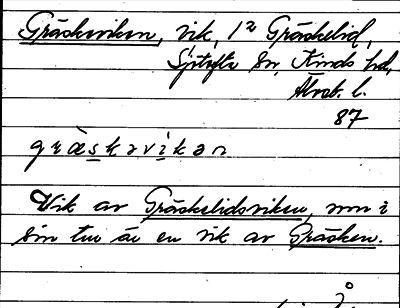 Gräskeviken, vik, 1² Gräskelid,
Sn, Kinds hd,
Älvsb. l.
87
græ̀skəvikən
Vik av Gräskelidsviken, som i
sin tur är en vik av Gräsken.